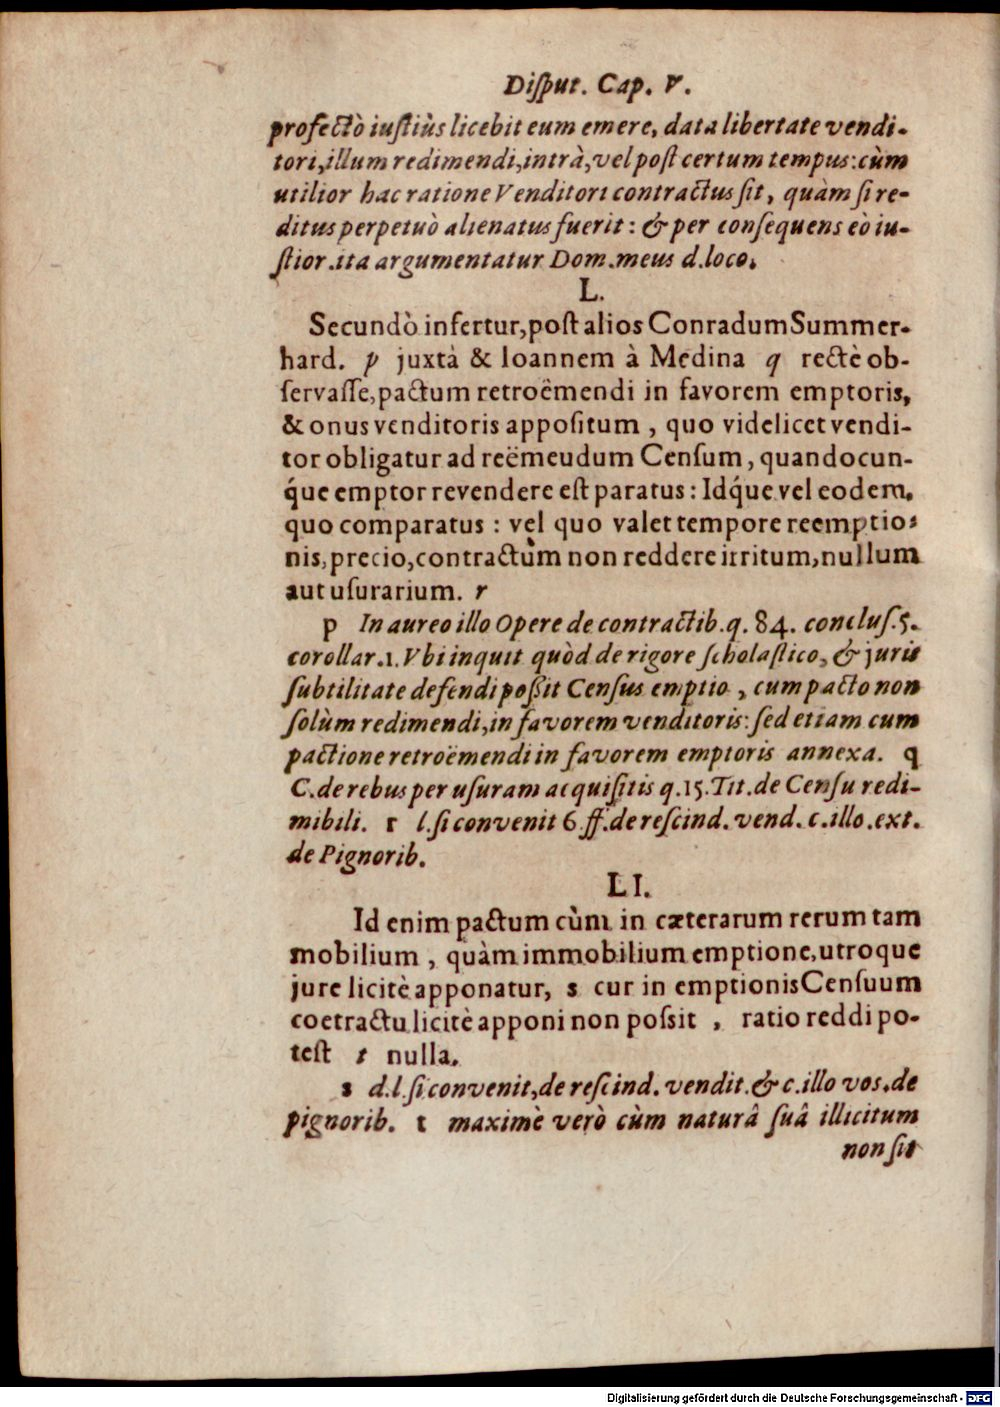 Diſput. Cap. V.
profectò iuſtiùs licebit eum emere, data libertate vendi-
tori, illum redimendi, intrà, vel poſt certum tempus: cùm
utilior hac ratione Venditori contractus ſit, quàm ſi re-
ditus perpetuò alienatus fuerit: & per conſequens eò iu-
ſtior. ita argumentatur Dom. meus d. loco.
L.
Secundò infertur, poſt alios Conradum Summer-
hard. p juxtà & Ioannem à Medina q rectè ob-
ſervaſſe, pactum retroëmendi in favorem emptoris,
& onus venditoris appoſitum, quo videlicet vendi-
tor obligatur ad reëmeudum Cenſum, quandocun-
q́ue emptor revendere eſt paratus: Idq́ue vel eodem,
quo comparatus: vel quo valet tempore reemptio-
nis, precio, contractùm non reddere irritum, nullum
aut uſurarium. r
p In aureo illo Opere de contractib. q. 84. concluſ. 5.
corollar. 1. Vbi inquit quòd de rigore ſcholaſtico, & juris
ſubtilitate defendi poſſit Cenſus emptio, cum pacto non
ſolùm redimendi, in favorem venditoris: ſed etiam cum
pactione retroëmendi in favorem emptoris annexa. q
C. de rebus per uſuram acquiſitis q. 15. Tit. de Cenſu redi-
mibili. r l. ſi convenit 6 ff. de reſcind. vend. c. illo. ext.
de Pignorib.
LI.
Id enim pactum cùm in cæterarum rerum tam
mobilium, quàm immobilium emptione, utroque
jure licitè apponatur, s cur in emptionis Cenſuum
coetractu licitè apponi non poſsit, ratio reddi po-
teſt t nulla.
s d. l. ſi convenit, de reſcind. vendit. & c. illo vos. de
pignorib. t maximè verò cùm naturâ ſuâ illicitum
non ſit
Digitalisierung gefördert durch die Deutsche Forschungsgemeinschaft - DFG